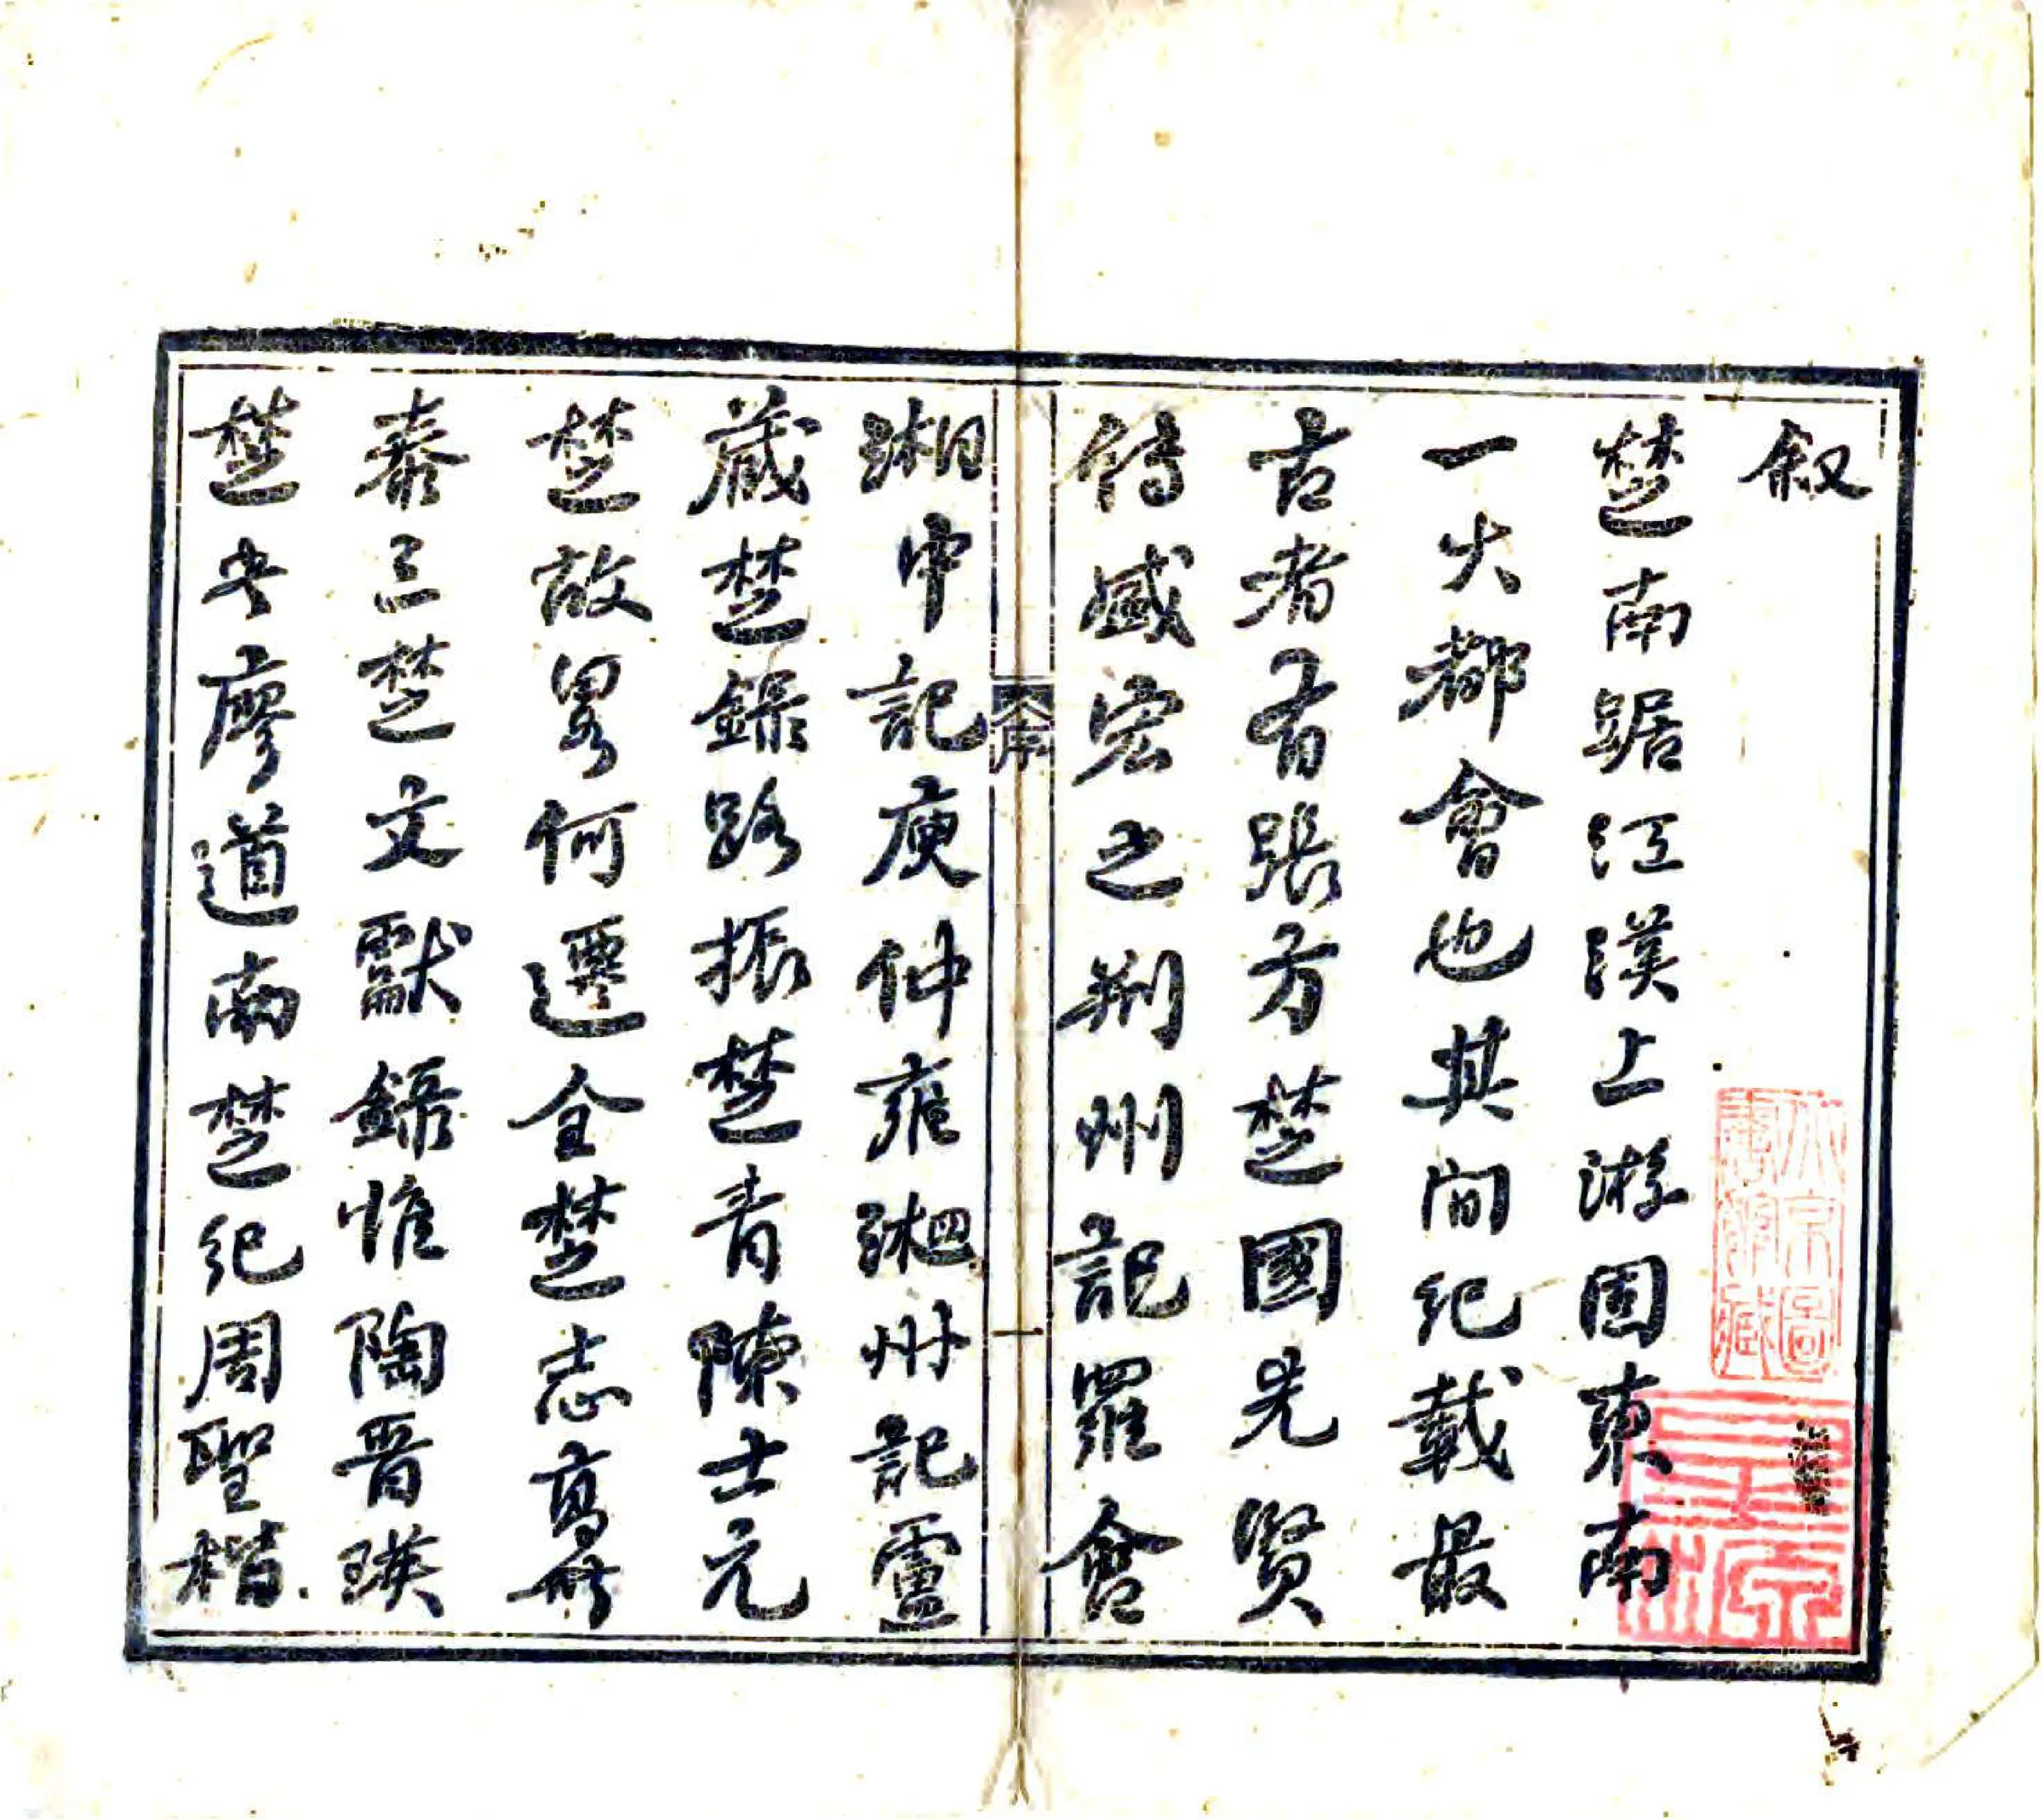 叙
楚南踞江漢上游固東南
一大都會也其间纪載最
古者有張方楚國先賢
傳盛宏之荆州記羅含
湘中記庾仲雍湘州記盧
藏楚録路振楚青陳士元
楚故畧何遷全楚志高世
泰三楚文獻録惟陶晋瑛
楚書廖道南楚纪周聖楷
大序
一